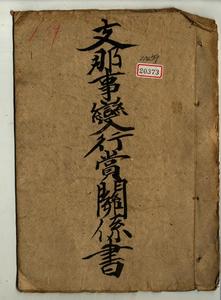 支那事變行賞關係書
20373